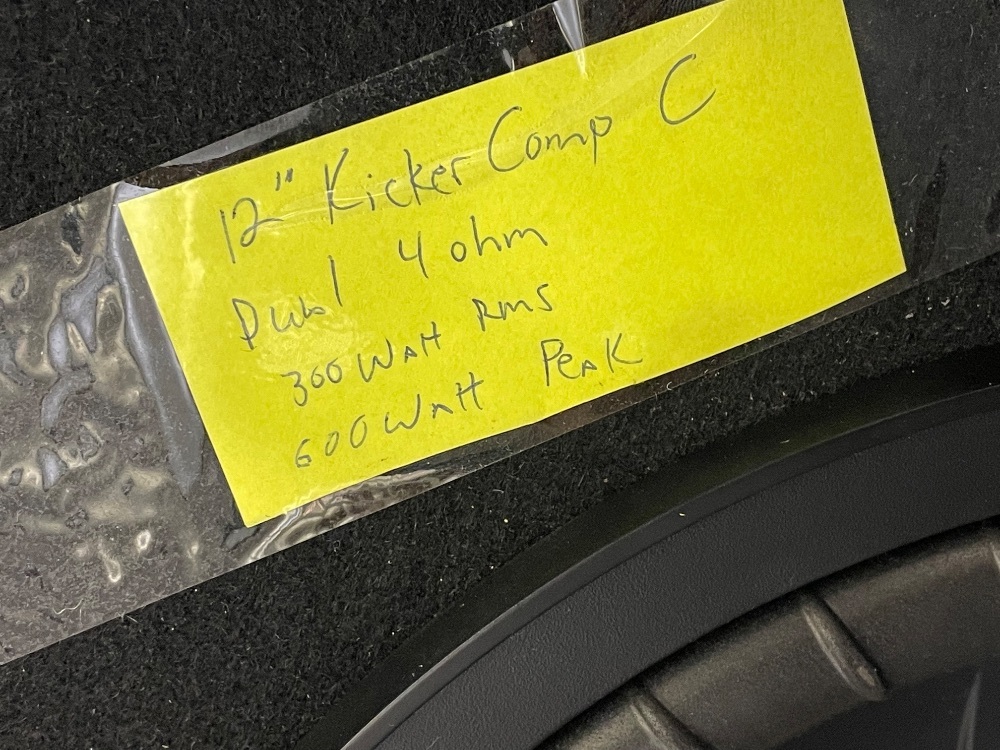 12" Kicker Comp C
Dual 4 ohm
300 Watt RMS
600 Watt Peak